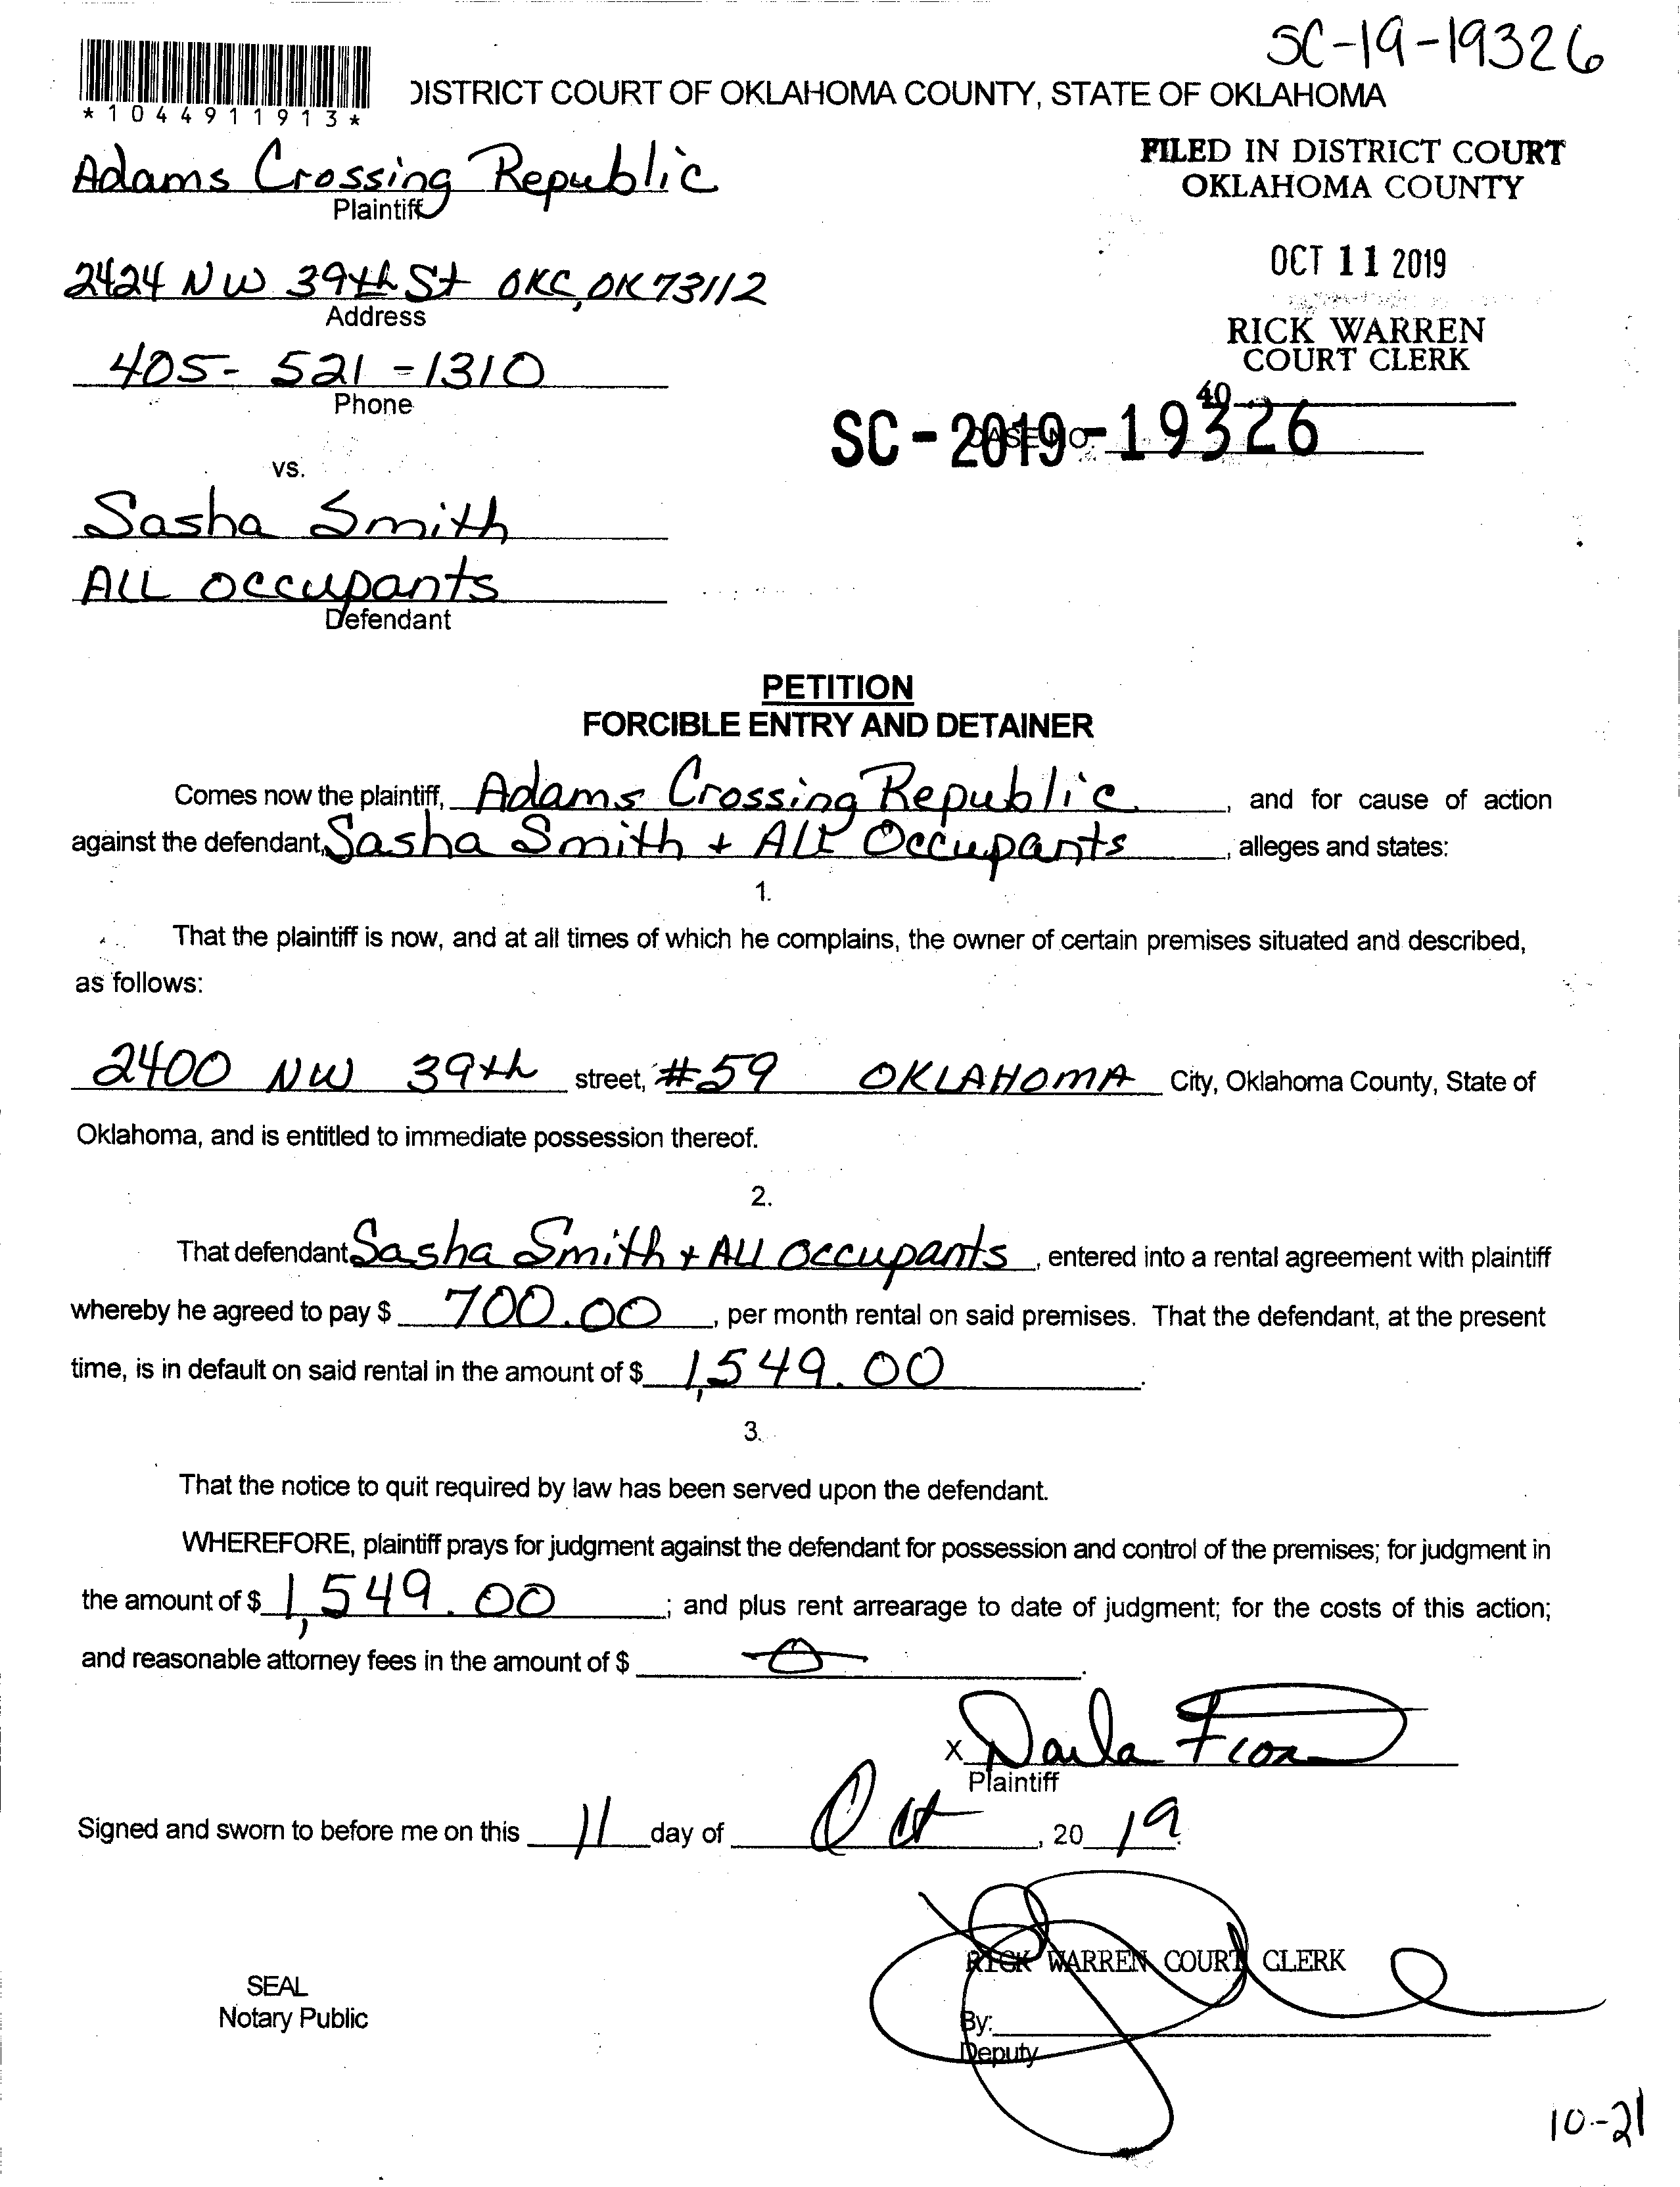 SC-19-19326
*1044911913*
DISTRICT COURT OF OKLAHOMA COUNTY, STATE OF OKLAHOMA
Adams Crossing Republic
Plaintiff
FILED IN DISTRICT COURT
OKLAHOMA COUNTY
2424 NW 39th St OKC, OK 73112
Address
OCT 11 2019
405-521-1310
Phone
RICK WARREN
COURT CLERK
40
CASE NO.
SC-2019-19326
vs.
Sasha Smith
ALL Occupants
Defendant
PETITION
FORCIBLE ENTRY AND DETAINER
Comes now the plaintiff, Adams Crossing Republic, and for cause of action
against the defendant, Sasha Smith + ALL Occupants, alleges and states:
1.
That the plaintiff is now, and at all times of which he complains, the owner of certain premises situated and described,
as follows:
2400 NW 39th street, #59 OKLAHOMA City, Oklahoma County, State of
Oklahoma, and is entitled to immediate possession thereof.
2.
That defendant Sasha Smith + ALL Occupants, entered into a rental agreement with plaintiff
whereby he agreed to pay $ 700.00, per month rental on said premises. That the defendant, at the present
time, is in default on said rental in the amount of $ 1,549.00.
3.
That the notice to quit required by law has been served upon the defendant.
WHEREFORE, plaintiff prays for judgment against the defendant for possession and control of the premises; for judgment in
the amount of $ 1,549.00; and plus rent arrearage to date of judgment; for the costs of this action;
and reasonable attorney fees in the amount of $ 0.
X Darla
Plaintiff
Signed and sworn to before me on this 11 day of Oct, 2019.
RICK WARREN COURT CLERK
SEAL
Notary Public
By:
Deputy
10-21